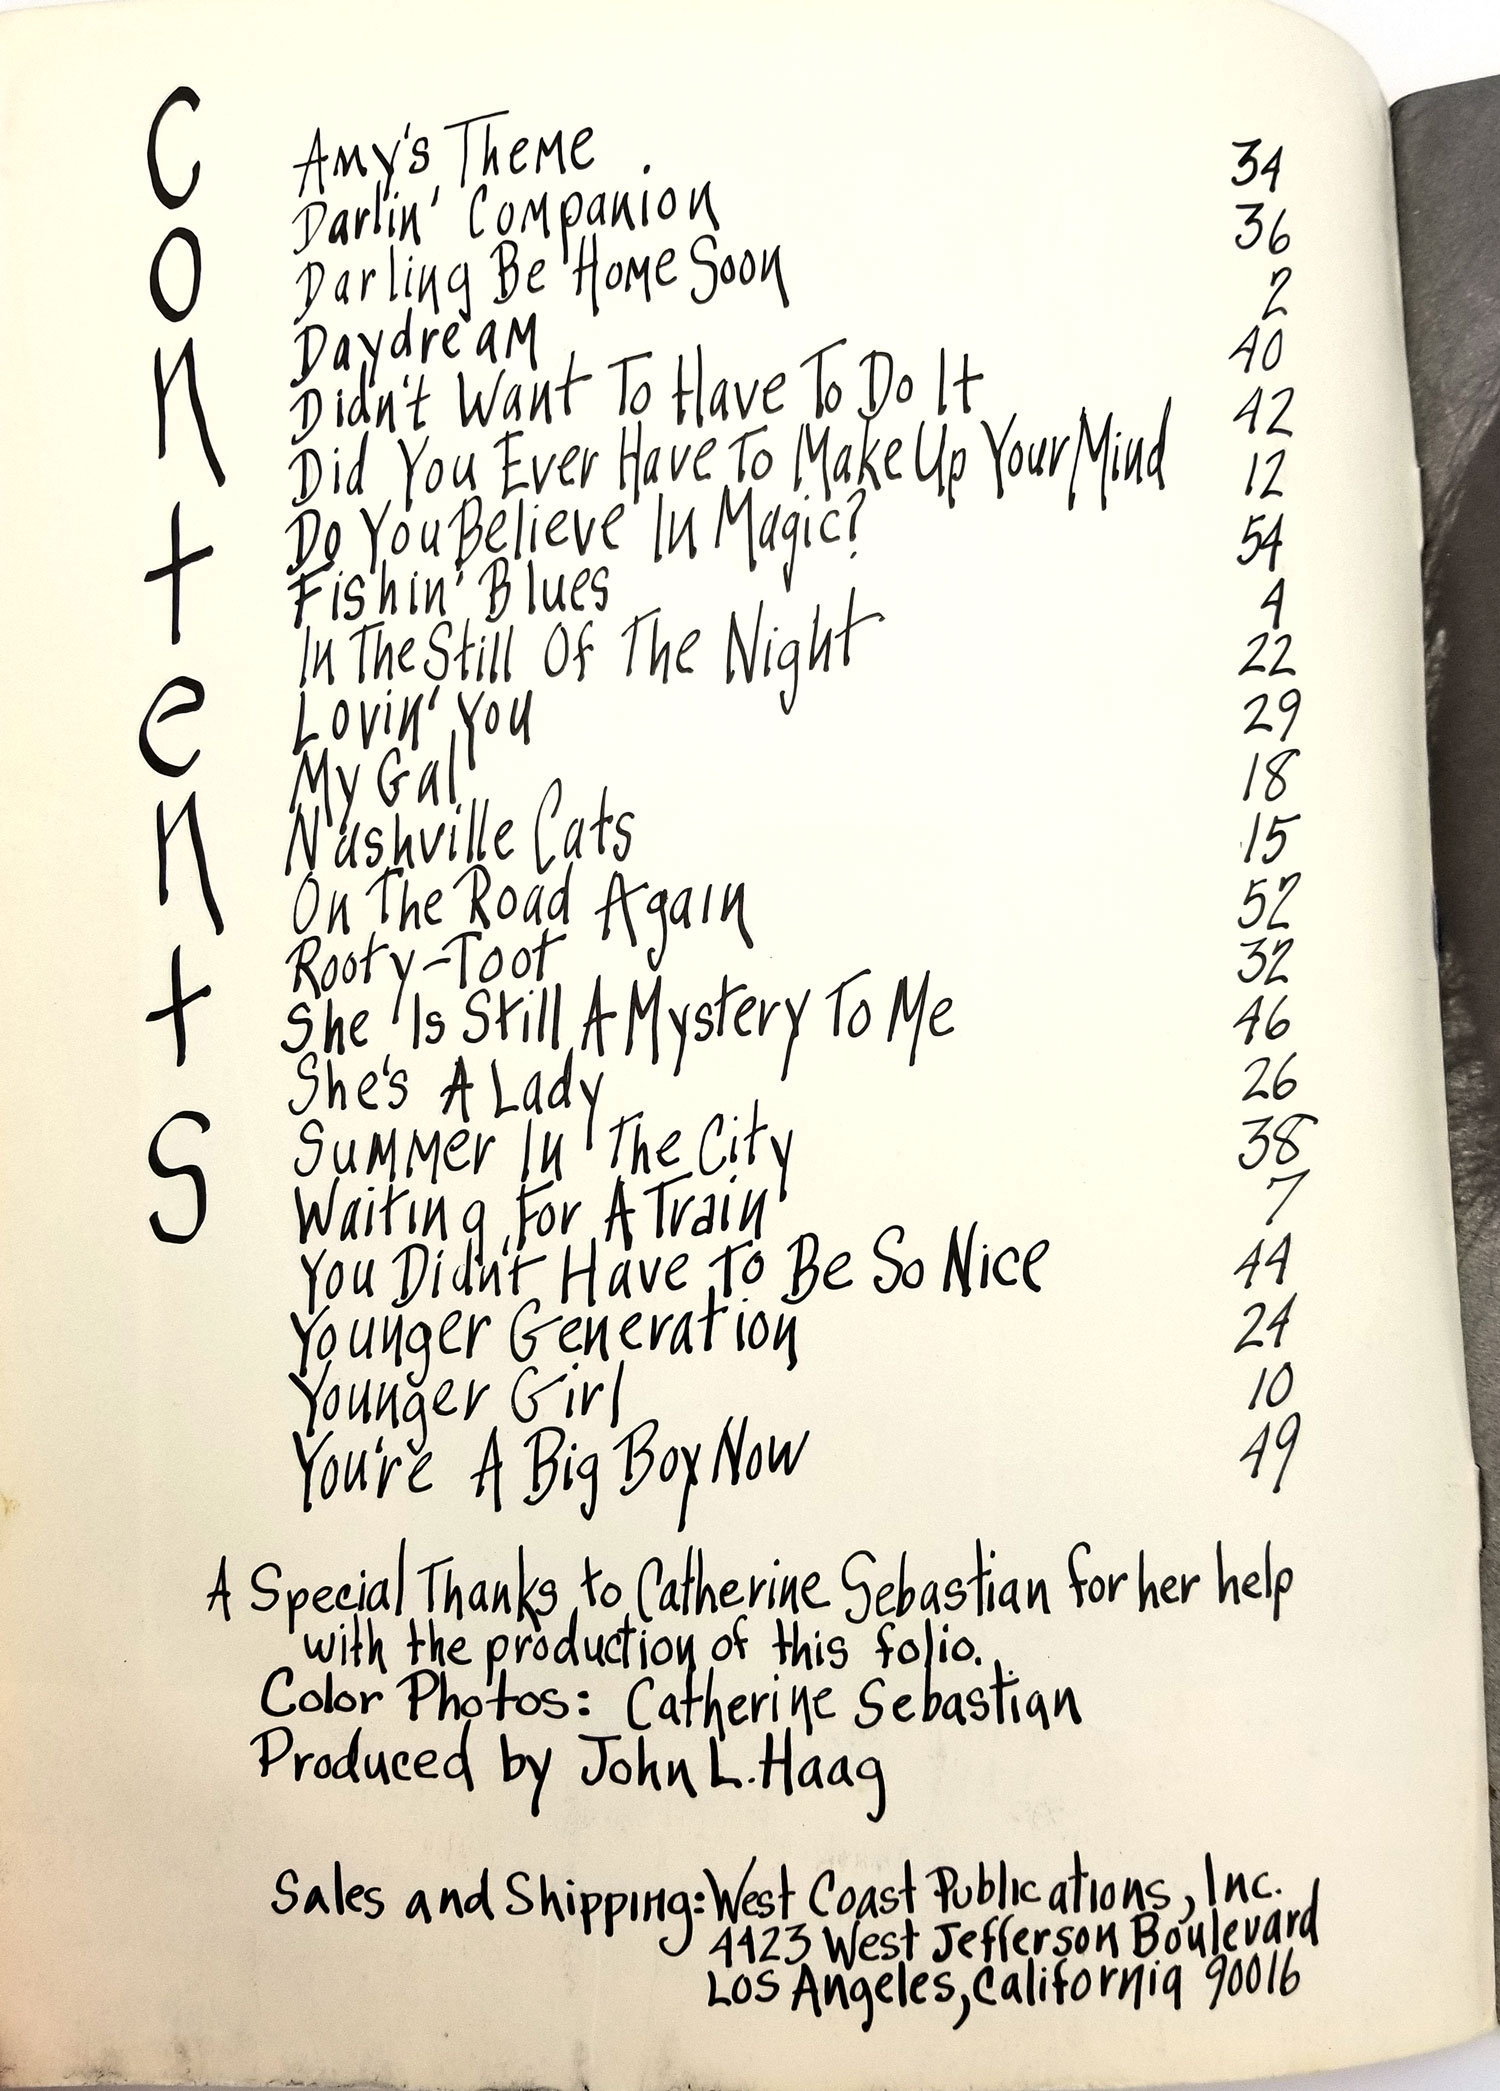 Contents
Amy's Theme 34
Darlin' Companion 36
Darling Be Home Soon 2
Daydream 40
Didn't Want To Have To Do It 42
Did You Ever Have To Make Up Your Mind 12
Do You Believe In Magic? 54
Fishin' Blues 4
In The Still Of The Night 22
Lovin' You 29
My Gal 18
Nashville Cats 15
On The Road Again 52
Rooty-Toot 32
She Is Still A Mystery To Me 46
She's A Lady 26
Summer In The City 38
Waiting For A Train 7
You Didn't Have To Be So Nice 44
Younger Generation 24
Younger Girl 10
You're A Big Boy Now 49
A Special Thanks to Catherine Sebastian for her help
with the production of this folio.
Color Photos: Catherine Sebastian
Produced by John L. Haag
Sales and Shipping: West Coast Publications, Inc.
4423 West Jefferson Boulevard
Los Angeles, California 90016